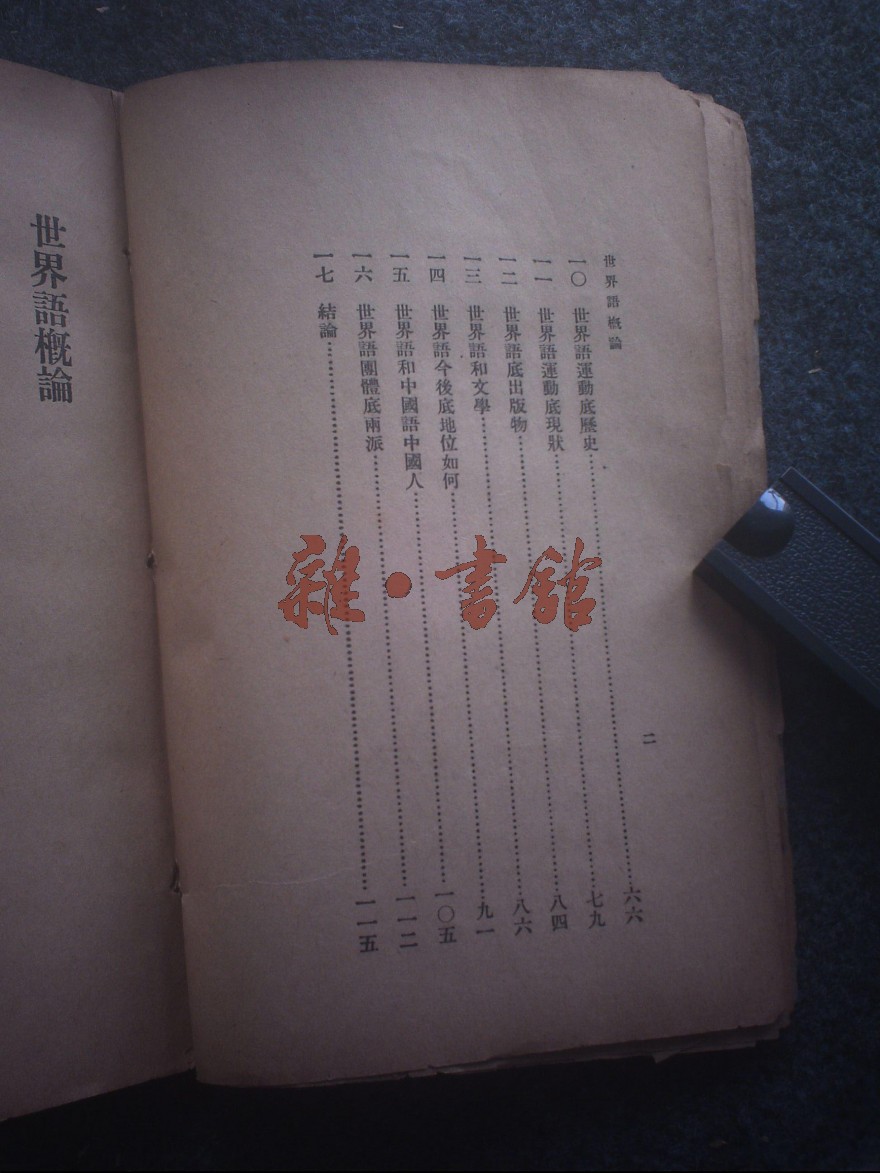 世界語槪論
二
一〇 世界語運動底歷史……六六
一一 世界語運動底現狀……七九
一二 世界語底出版物……八四
一三 世界語和文學……八六
一四 世界語今後底地位如何……九一
一五 世界語和中國語中國人……一〇五
一六 世界語團體底兩派……一一二
一七 結論……一一五
世界語槪論
雜·書館